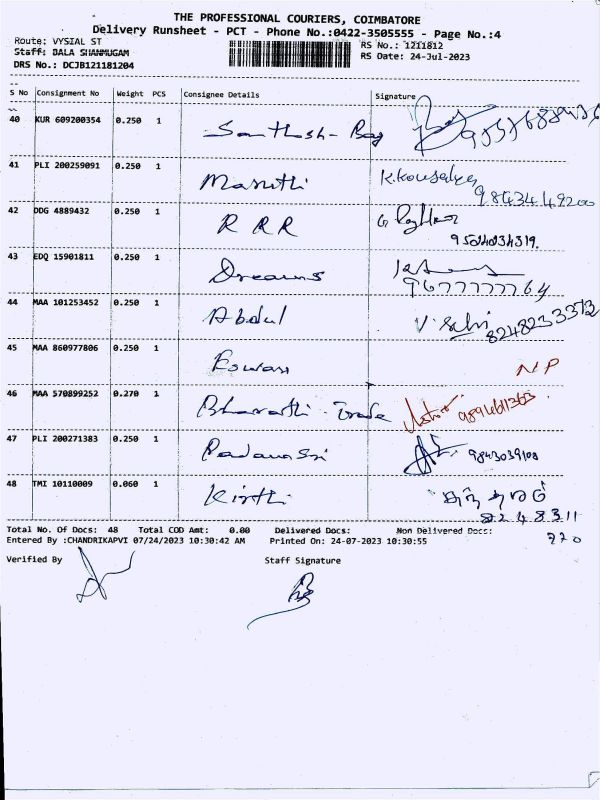 THE PROFESSIONAL COURIERS, COIMBATORE
Delivery Runsheet - PCT - Phone No.:0422-3505555 - Page No.:4
Route: VYSIAL ST
RS No.: 1211812
Staff: BALA SHANMUGAM
RS Date: 24-Jul-2023
DRS No.: DCJB121181204
S No Consignment No Weight PCS Consignee Details Signature
40 KUR 609200354 0.250 1 Santhosh - Bag
41 PLI 200259091 0.250 1 Maruthi K.Kousalya
9843449200
42 DDG 4889432 0.250 1 R R R
9524034319.
43 EDQ 15901811 0.250 1 Dreams
9677777764
44 MAA 101253452 0.250 1 Abdul V. Selvi
8248233372
45 MAA 860977806 0.250 1 Eswari NP
46 MAA 570899252 0.270 1 Bharathi - Trade
47 PLI 200271383 0.250 1 9843039108
48 TMI 10110009 0.060 1 Kirthi
8248311
220
Total No. Of Docs: 48 Total COD Amt: 0.00 Delivered Docs: Non Delivered Docs:
Entered By :CHANDRIKAPVI 07/24/2023 10:30:42 AM Printed On: 24-07-2023 10:30:55
Verified By Staff Signature